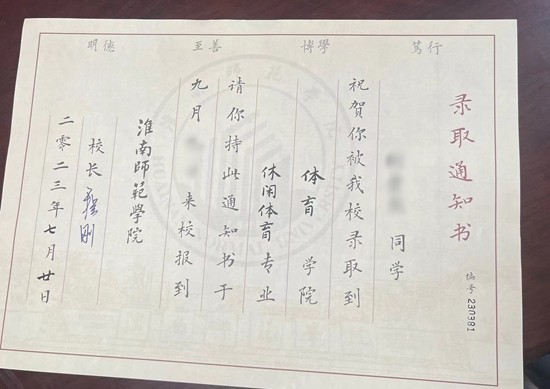 明德
至善
博學
篤行
录取通知书
编号 230381
同学
祝贺你被我校录取到
体育 学院
休闲体育专业
请你持此通知书于
九月 来校报到
淮南師範學院
校长
二零二三年七月廿日